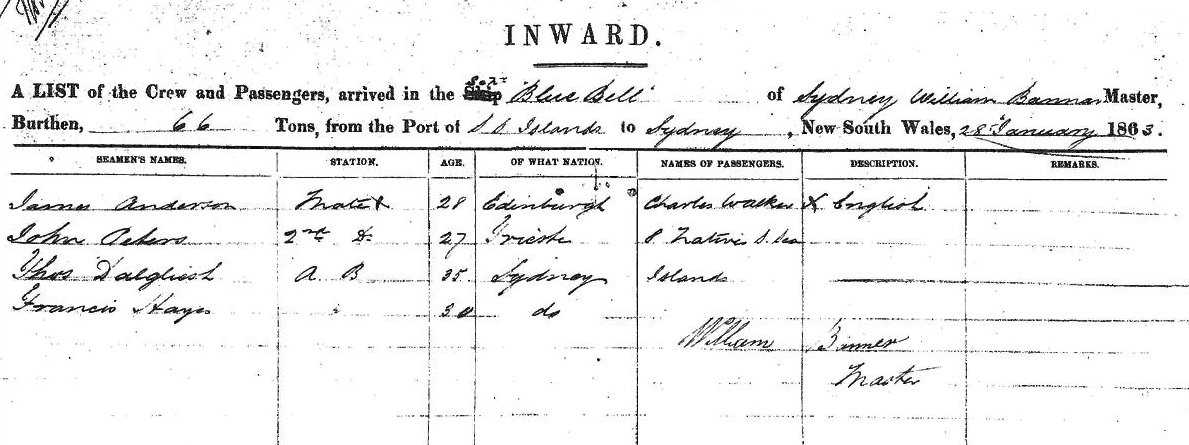 INWARD.
A LIST of the Crew and Passengers, arrived in the Ship "Blue Bell" of Sydney William Bannar Master,
Burthen, 66 Tons, from the Port of S S Islands to Sydney, New South Wales, 28 January 1863.
SEAMEN'S NAMES. STATION. AGE. OF WHAT NATION. NAMES OF PASSENGERS. DESCRIPTION. REMARKS.
James Anderson Mate 28 Edinburgh Charles Walker X English
John Peters 2nd Do 27 Trieste Natives S. Sea
Thos Dalgliesh A B 35 Sydney Islands
Francis Hayes " 30 do
William Banner
Master